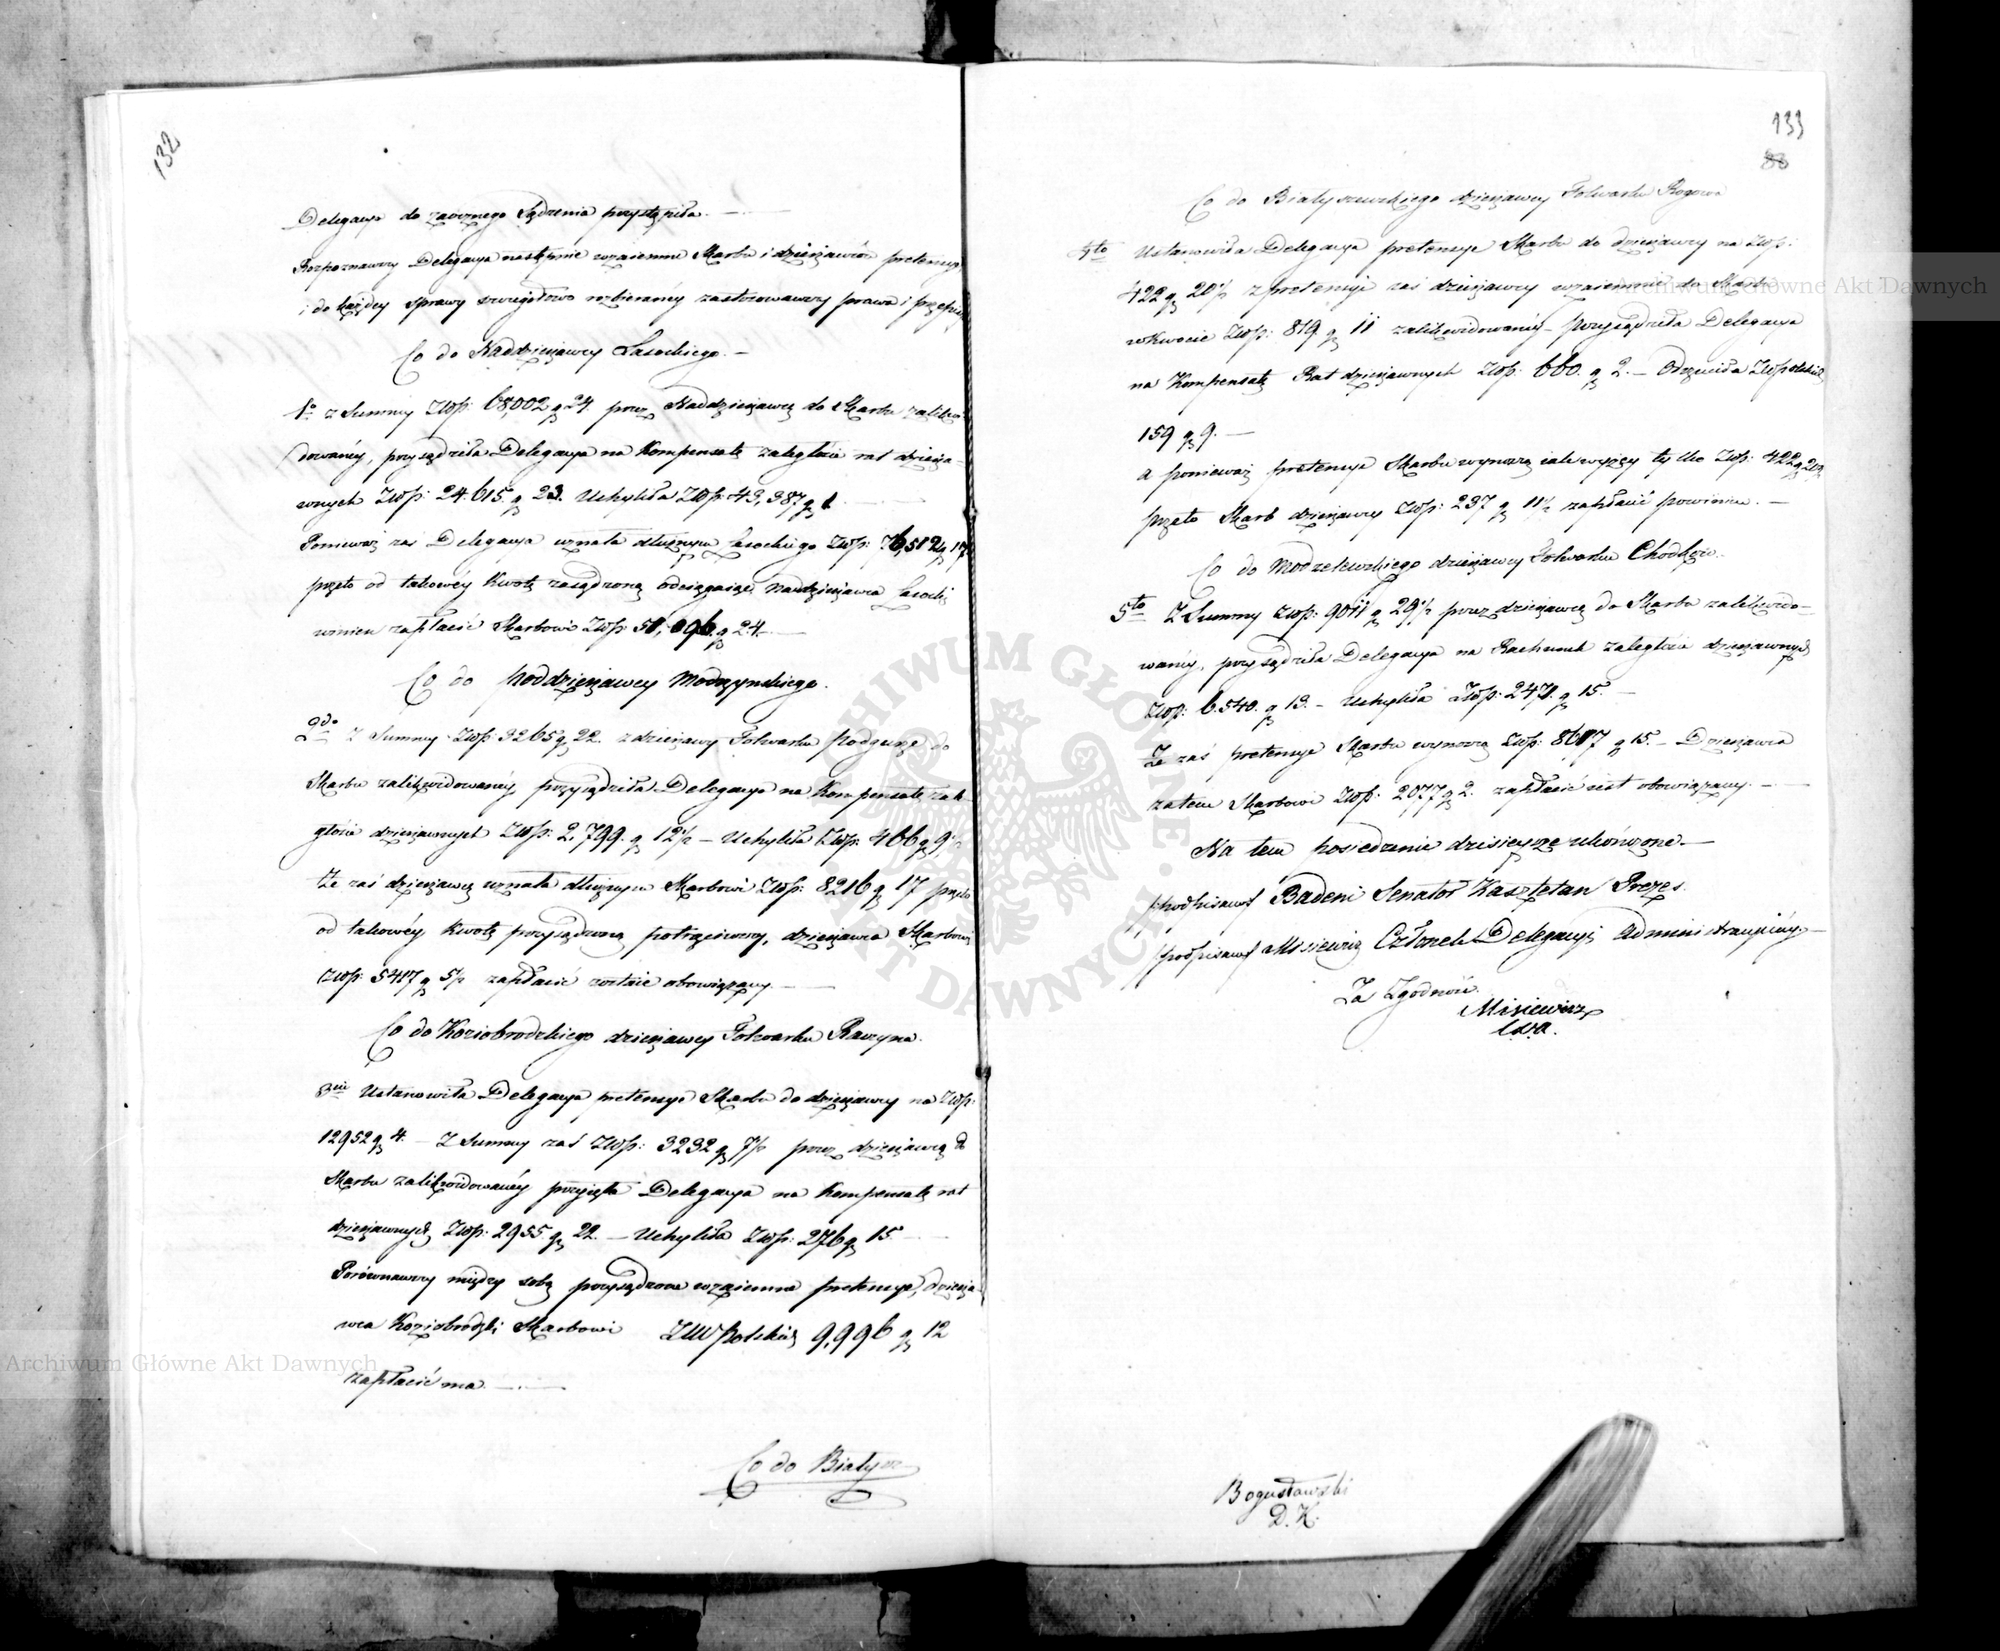 132
Delegacya do zaocznego sądzenia przystąpiła. —
Rozpoznawszy Delegacya następnie wzaiemne Skarbu i dzierżawców pretensye,
i do każdey sprawy szczegółowo rozbieraney zastosowawszy prawa i przepisy
Co do Naddzierżawcy Lasockiego. —
1o z Summy Złłp: 68,002 g 24. przez Naddzierżawcę do Skarbu zalikwi-
dowaney, przysądziła Delegacya na Kompensatę zaległości rat dzierża-
wnych Złłp: 24.615 g 23. Uchyliła Złłp: 43,387 g 1
Ponieważ zaś Delegacya uznała dłużnym Lasockiego Złłp: 76,512 g 17
przeto od takowey Kwotę zasądzoną odciągaiąc, Naddzierżawca Lasocki
winien zapłacić Skarbowi Złłp: 51,896 g 24. —
Co do Poddzierżawcy Modzynskiego.
2do Z Summy Złłp: 3265 g 22. z dzierżawy Folwarku Podgurze do
Skarbu zalikwidowaney przysądziła Delegacya na Kompensatę zale-
głości dzierżawnych Złłp: 2,799. g 12½ — Uchyliła Złłp: 466 g 9½
Że zaś dzierżawcę uznała dłużnym Skarbowi Złłp: 8216 g 17 przeto
od takowey Kwotę przysądzoną potrąciwszy, dzierżawca Skarbowi
Złłp: 5417 g 5½ zapłacić zostaie obowiązany. —
Co do Koziebrodzkiego dzierżawcy Folwarku Raczyna.
3cio Ustanowiła Delegacya pretensye Skarbu do dzierżawcy na Złłp:
12952 g 4. — Z Summy zaś Złłp: 3232 g 7½ przez dzierżawcę do
Skarbu zalikwidowaney przyięła Delegacya na Kompensatę rat
dzierżawnych Złłp: 2955. g 22. — Uchyliła Złłp: 276 g 15.
Porównawszy między sobą przysądzone wzaiemne pretensye, dzierża-
wca Koziebrodzki Skarbowi Złł Polskich 9,996 g 12
zapłacić ma. —
Co do Białysz
133
88
Co do Białyszewskiego dzierżawcy Folwarku Rogowa
4to Ustanowiła Delegacya pretensye Skarbu do dzierżawcy na Złłp:
422 g 20½ z pretensyi zaś dzierżawcy wzaiemnie do Skarbu
w kwocie Złłp: 819 g 11 zalikwidowaney — przysądziła Delegacya
na Kompensatę Rat dzierżawnych Złłp: 660. g 2. — Odrzuciła Złł Polskich
159 g 9. —
a ponieważ pretensye Skarbu wynoszą iak wyżey tylko Złłp: 422 g 20½
przeto Skarb dzierżawcy Złłp: 237 g 11½ zapłacić powinien. —
Co do Modzelewskiego dzierżawcy Folwarku Chodkow.
5to Z Summy Złłp: 9011 g 29½ przez dzierżawcę do Skarbu zalikwido-
waney, przysądziła Delegacya na Rachunek zaległości dzierżawnych
Złłp: 6.540. g 13. — Uchyliła Złłp: 2471. g 15. —
Że zaś pretensye Skarbu wynoszą Złłp: 8617 g 15. — Dzierżawca
zatem Skarbowi Złłp: 2,077 g 2. zapłacić iest obowiązany. —
Na tem posiedzenie dzisieysze ukończone. —
/podpisany/ Badeni Senator Kasztelan Prezes.
/podpisany/ Misiewicz Członek Delegacyi Administracyiney. —
Za Zgodność
Misiewicz
Bogusławski
D. K.
Archiwum Główne Akt Dawnych
Archiwum Główne Akt Dawnych
ARCHIWUM GŁÓWNE AKT DAWNYCH